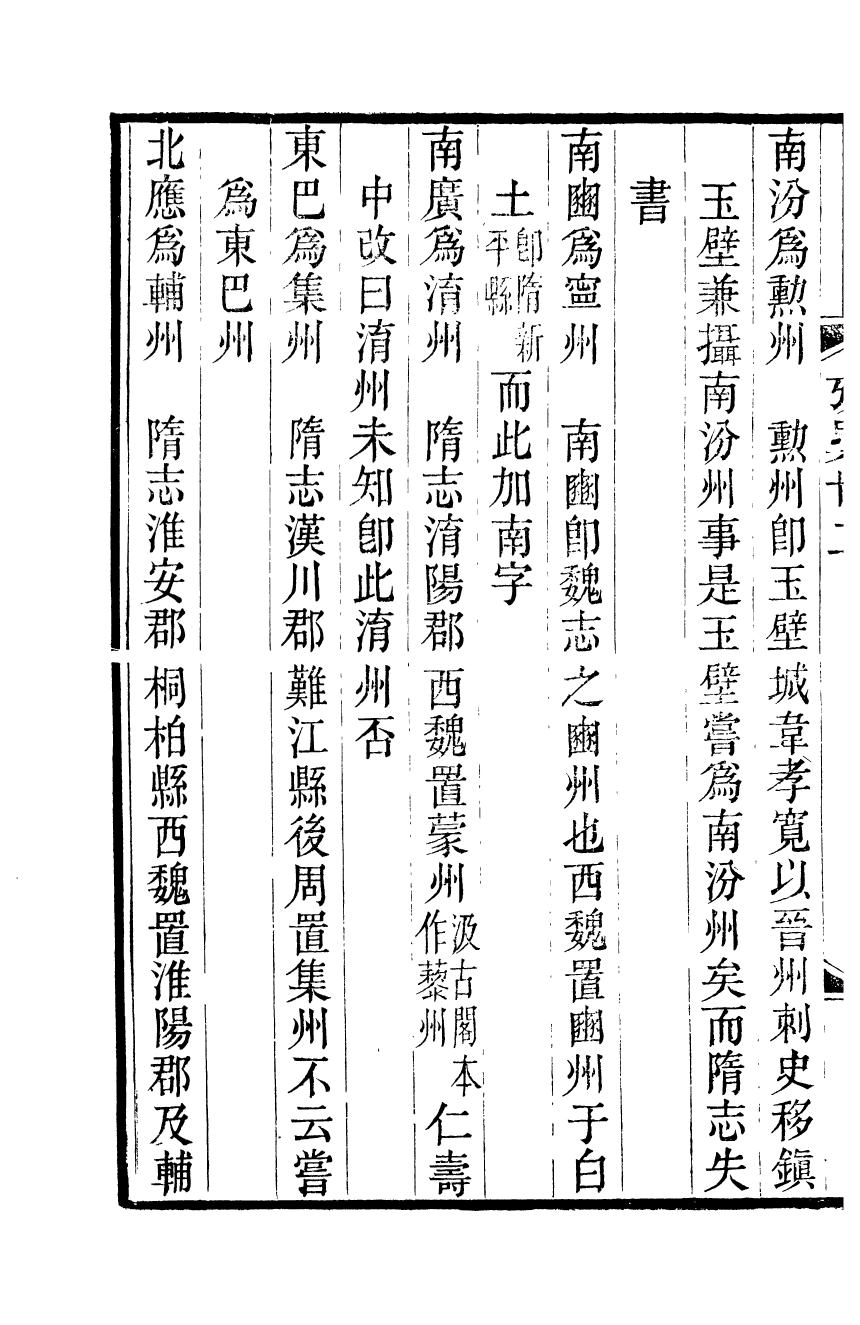 南汾爲勲州　勲州卽玉壁城韋孝寛以晉州刺史移鎭
玉壁兼攝南汾州事是玉壁嘗爲南汾州矣而隋志失
書
南豳爲寧州　南豳卽魏志之豳州也西魏置豳州于白
土卽隋新平縣而此加南字
南廣爲淯州　隋志淯陽郡西魏置蒙州汲古閣本作藜州仁壽
中改曰淯州未知卽此淯州否
東巴爲集州　隋志漢川郡難江縣後周置集州不云嘗
爲東巴州
北應爲輔州　隋志淮安郡桐柏縣西魏置淮陽郡及輔